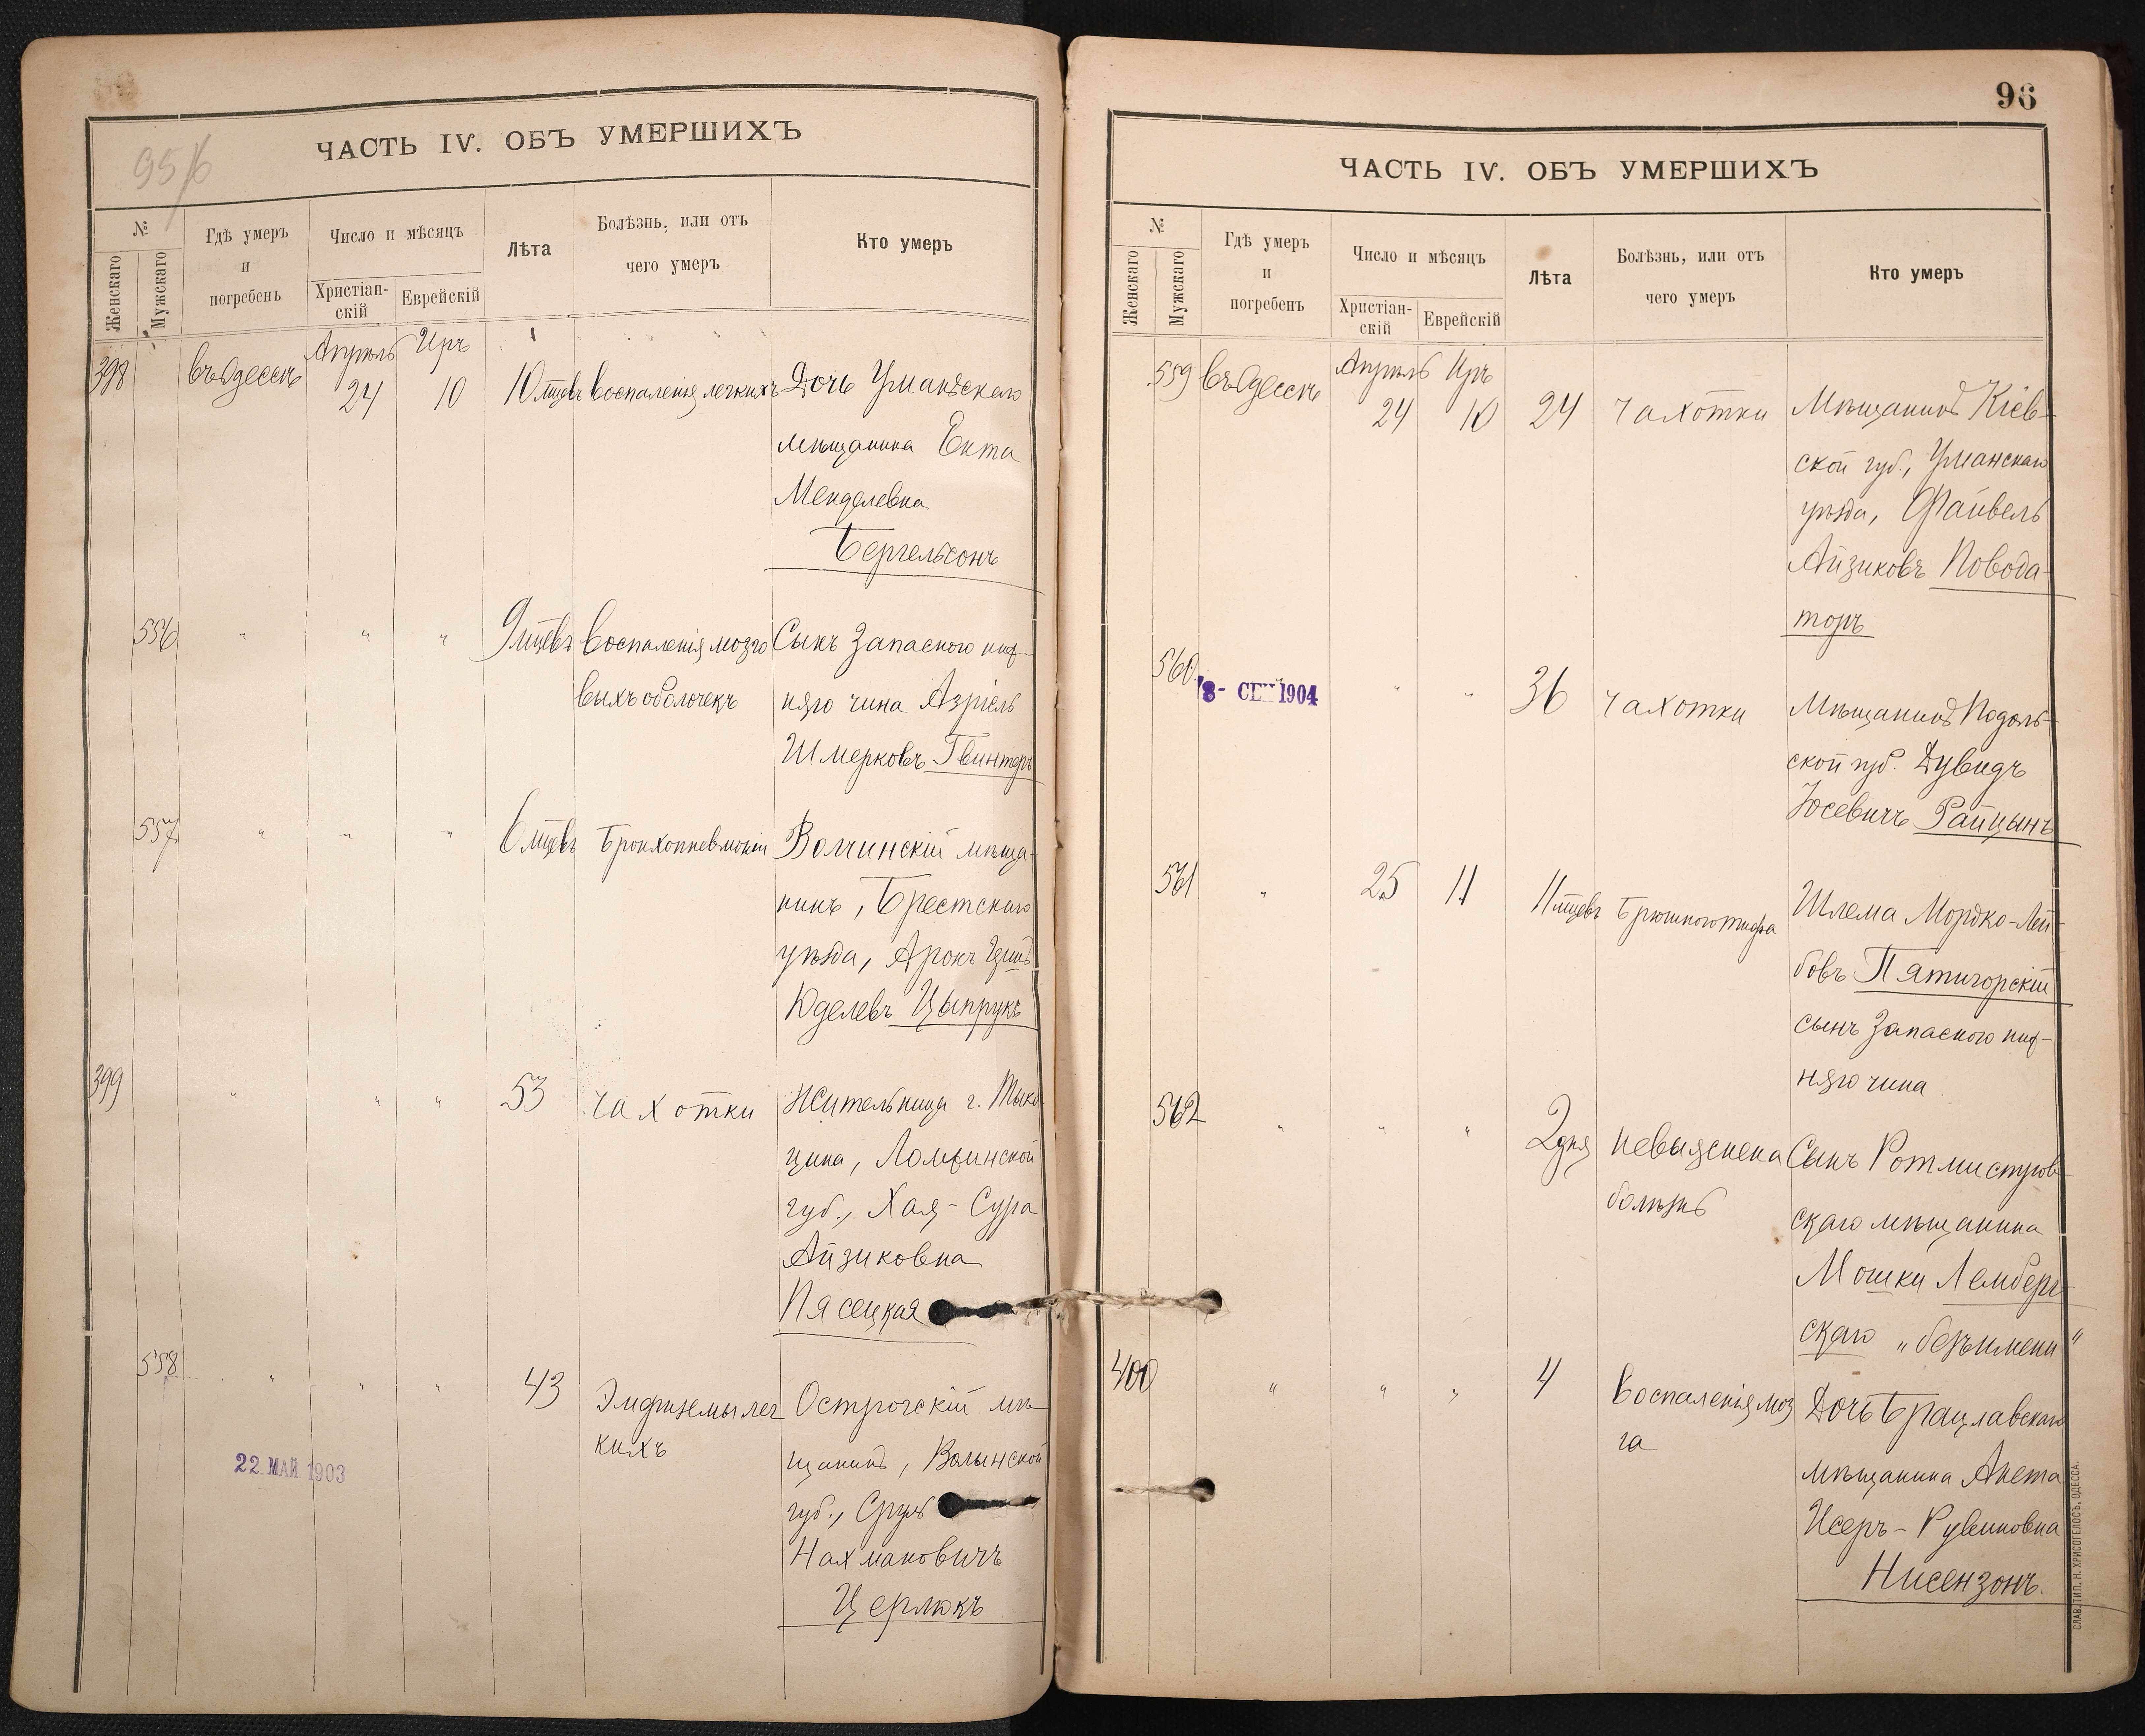 95/б
ЧАСТЬ IV. ОБЪ УМЕРШИХЪ
№
Женскаго
Мужскаго
Гдѣ умеръ
и
погребенъ
Число и мѣсяцъ
Христіан-
скій
Еврейскій
Лѣта
Болѣзнь, или отъ
чего умеръ
Кто умеръ
Апрѣль Иръ
398 въ Одессѣ 24 10 10 мцевъ воспаленія легкихъ Дочь Уманьскаго
мѣщанина Ента
Менделевна
Бергельсонъ
556 " " " 9 мцевъ воспаленія мозго Сынъ Запасного ниж-
выхъ оболочекъ няго чина Азріель
Шмерковъ Гвинтеръ
557 " " " 6 мцевъ Бронхопневмоніи Волчинскій мѣща-
нинъ, Брестскаго
уѣзда, Аронъ
Юделевъ Цыпрукъ
399 " " " 53 чахотки Жительница г. Тыко-
цина, Ломжинской
губ., Хая-Сура
Айзиковна
Пясецкая
558 " " " 43 Эмфиземы лег Острогскій мѣ-
кихъ щанинъ, Волынской
губ., Сруль
Нахмановичъ
Церлюкъ
22. МАЙ. 1903
96
ЧАСТЬ IV. ОБЪ УМЕРШИХЪ
№
Женскаго
Мужскаго
Гдѣ умеръ
и
погребенъ
Число и мѣсяцъ
Христіан-
скій
Еврейскій
Лѣта
Болѣзнь, или отъ
чего умеръ
Кто умеръ
Апрѣль Иръ
559 въ Одессѣ 24 10 24 чахотки Мѣщанинъ Кіев-
ской губ., Уманскаго
уѣзда, Файвель
Айзиковъ Повода-
торъ
560 " " 36 чахотки Мѣщанинъ Подоль-
8- СЕН 1904
ской губ. Дувидъ
Юсевичъ Райцынъ
561 " 25 11 11 мцевъ Брюшного тифа Шлема Мордко-Лей-
бовъ Пятигорскій
сынъ Запасного ниж-
няго чина
562 " " " 2 дня невыяснена Сынъ Ротмистров-
болѣзнь скаго мѣщанина
Мошки Лемберг-
скаго „безъ имени"
400 " " " 4 воспаленія моз Дочь Брацлавскаго
га мѣщанина Анета
Исеръ-Рувиновна
Нисензонъ.
СЛАВ. ТИП. Н. ХРИСОГЕЛОСЪ, ОДЕССА.